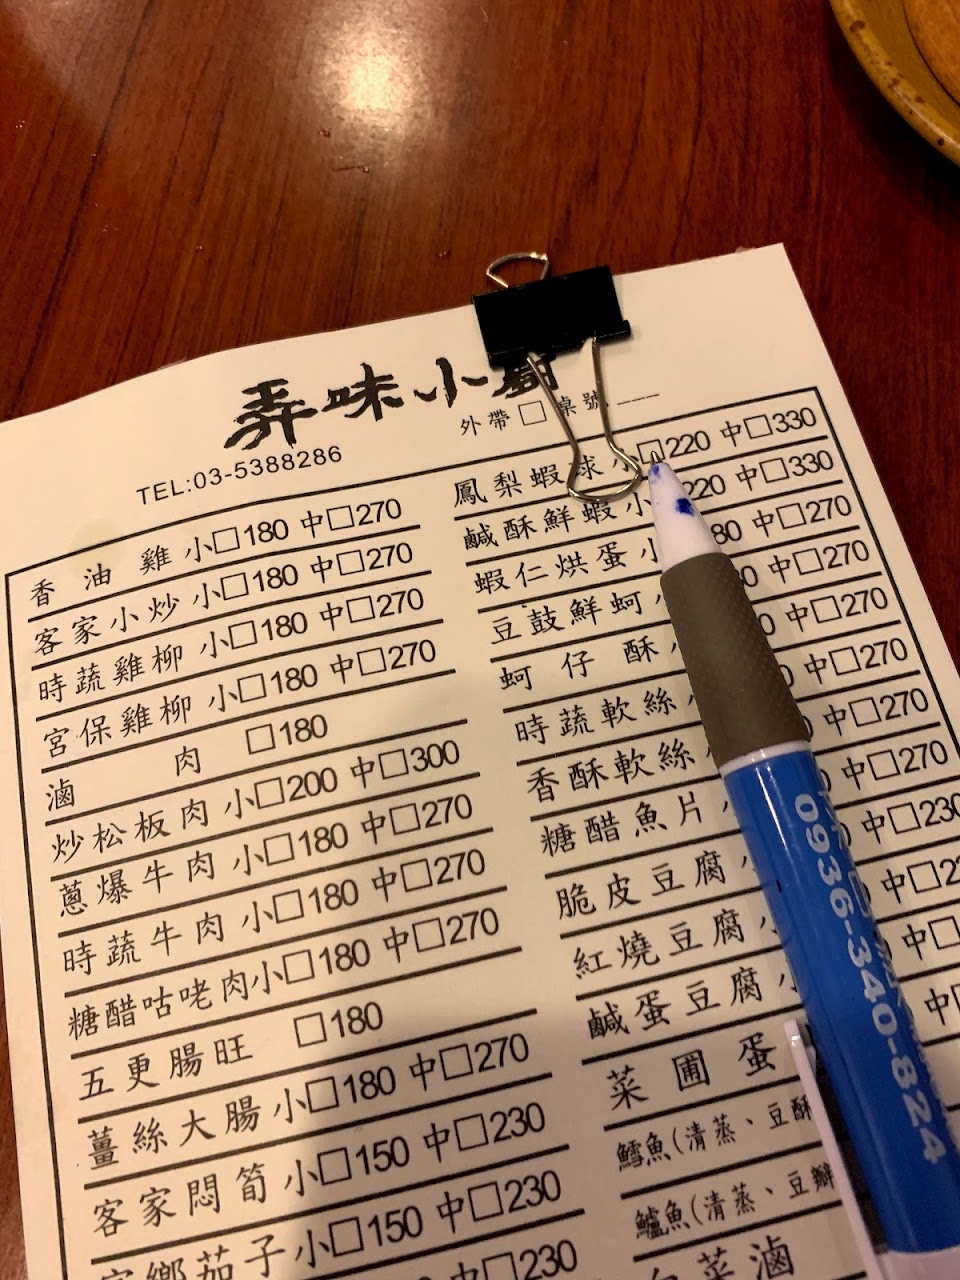 弄味小廚
外帶□桌號___
TEL:03-5388286
香油雞 小□180 中□270
客家小炒 小□180 中□270
時蔬雞柳 小□180 中□270
宮保雞柳 小□180 中□270
滷肉 □180
炒松板肉 小□200 中□300
蔥爆牛肉 小□180 中□270
時蔬牛肉 小□180 中□270
糖醋咕咾肉 小□180 中□270
五更腸旺 □180
薑絲大腸 小□180 中□270
客家悶筍 小□150 中□230
客鄉茄子 小□150 中□230
230
鳳梨蝦球 小□220 中□330
鹹酥鮮蝦 小 220 中□330
蝦仁烘蛋 小 80 中□270
豆鼓鮮蚵 0 中□270
蚵仔酥 中□270
時蔬軟絲 中□270
香酥軟絲 中□270
糖醋魚片 中□270
脆皮豆腐 中□230
紅燒豆腐 中□2
鹹蛋豆腐 小 中□
菜圃蛋 中
鱈魚(清蒸、豆酥
鱸魚(清蒸、豆瓣
菜滷
0936-340-824